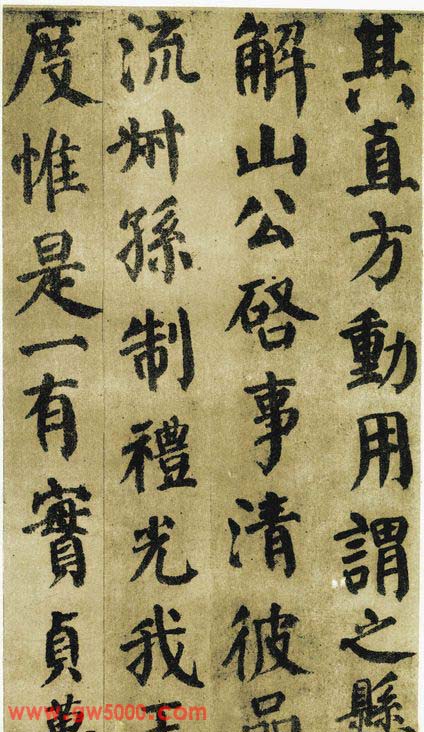 其直方動用謂之縣
解山公啓事清彼品
流州孫制禮光我王
度惟是一有實貞萬
www.gw5000.com